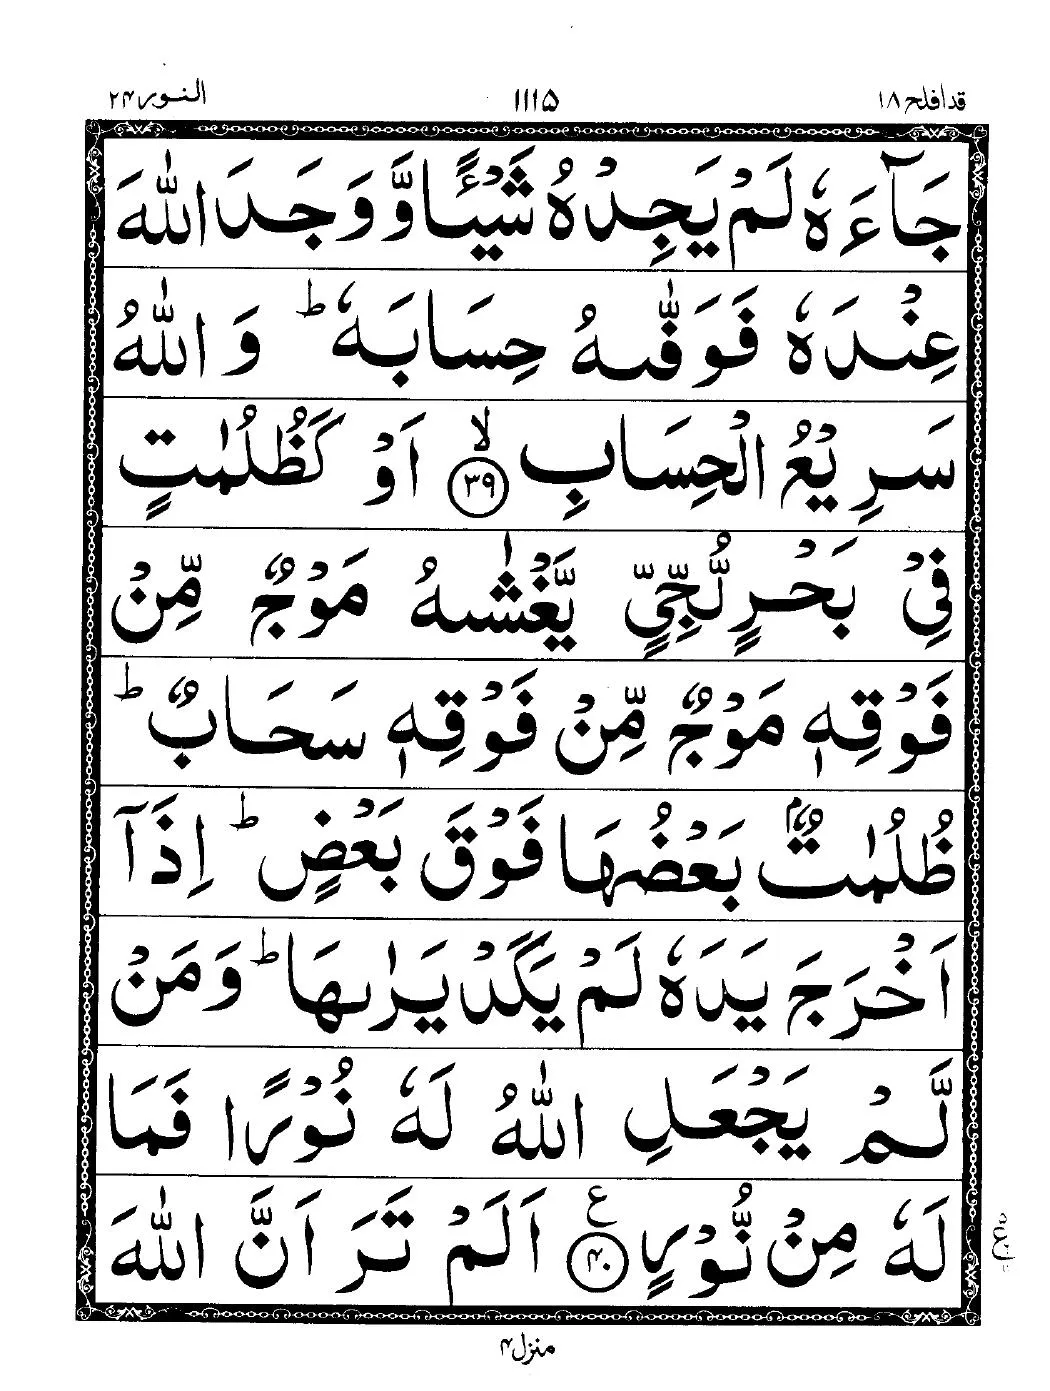 قدافلح ۱۸ ۱۱۱۵ النور ۲۴
جَآءَهٗ لَمْ يَجِدْهُ شَيْـًٔا وَّ وَجَدَ اللّٰهَ
عِنْدَهٗ فَوَفّٰىهُ حِسَابَهٗ ؕ وَ اللّٰهُ
سَرِيْعُ الْحِسَابِ ۙ‏﴿۳۹﴾ اَوْ كَظُلُمٰتٍ
فِىْ بَحْرٍ لُّجِّىٍّ يَّغْشٰىهُ مَوْجٌ مِّنْ
فَوْقِهٖ مَوْجٌ مِّنْ فَوْقِهٖ سَحَابٌ ؕ
ظُلُمٰتٌۢ بَعْضُهَا فَوْقَ بَعْضٍ ؕ اِذَاۤ
اَخْرَجَ يَدَهٗ لَمْ يَكَدْ يَرٰىهَا ؕ وَ مَنْ
لَّمْ يَجْعَلِ اللّٰهُ لَهٗ نُوْرًا فَمَا
لَهٗ مِنْ نُّوْرٍ ﴿۴۰﴾ ع اَلَمْ تَرَ اَنَّ اللّٰهَ
منزل ۴